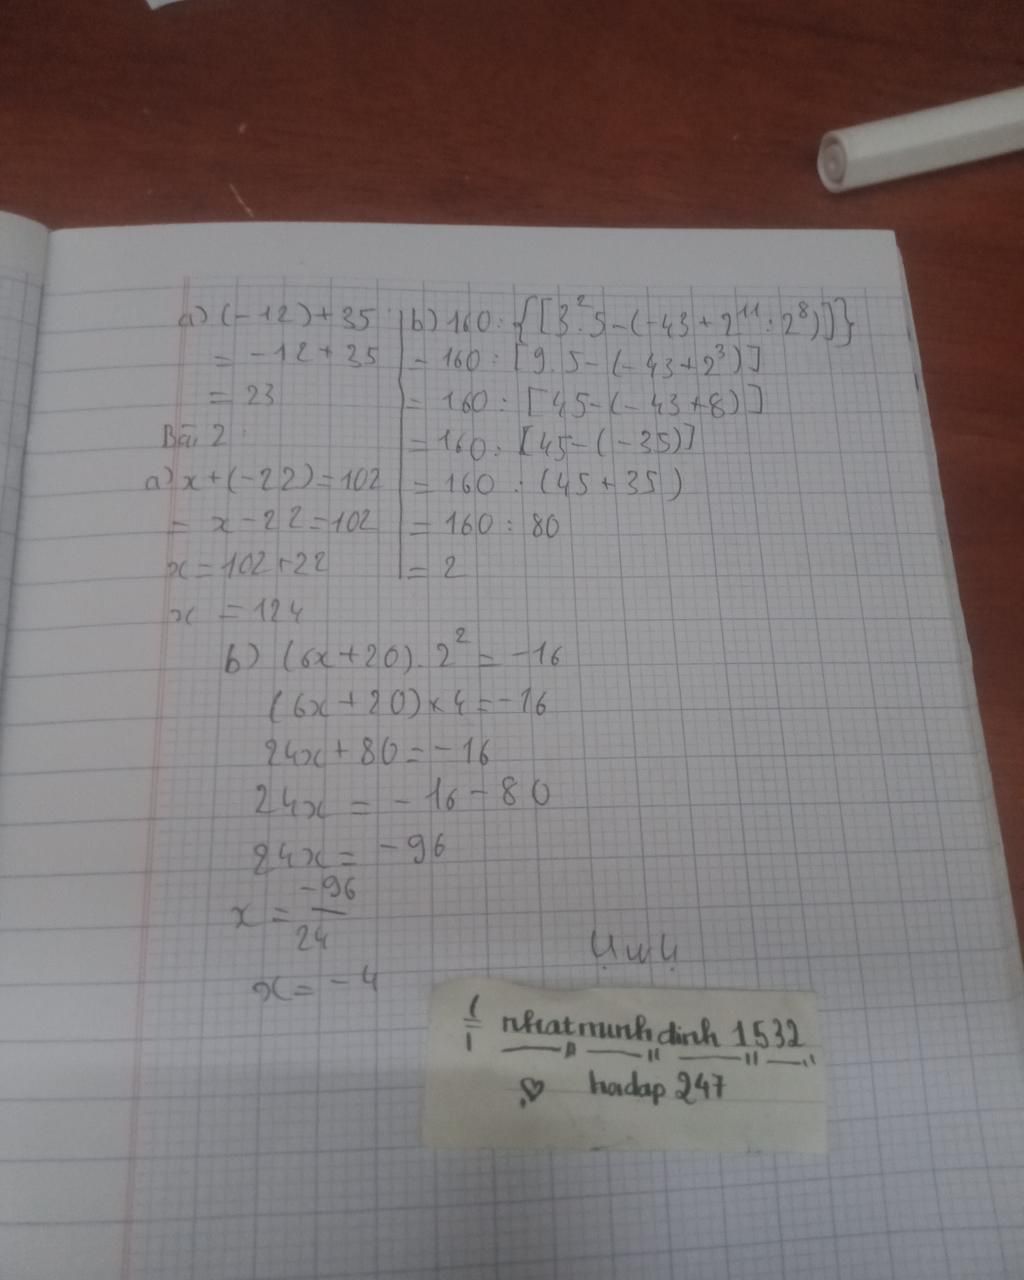 a) (-12) + 35
= -12 + 35
= 23
b) 160 : {[3².5 - (-43 + 2¹¹ : 2⁸)]}
= 160 : [9.5 - (-43 + 2³)]
= 160 : [45 - (-43 + 8)]
= 160 : [45 - (-35)]
= 160 : (45 + 35)
= 160 : 80
= 2
Bài 2
a) x + (-22) = 102
= x - 22 = 102
x = 102 + 22
x = 124
b) (6x + 20) . 2² = -16
(6x + 20) × 4 = -16
24x + 80 = -16
24x = -16 - 80
24x = -96
x = -96/24
x = -4
nhatminhdinh 1532
hoidap 247